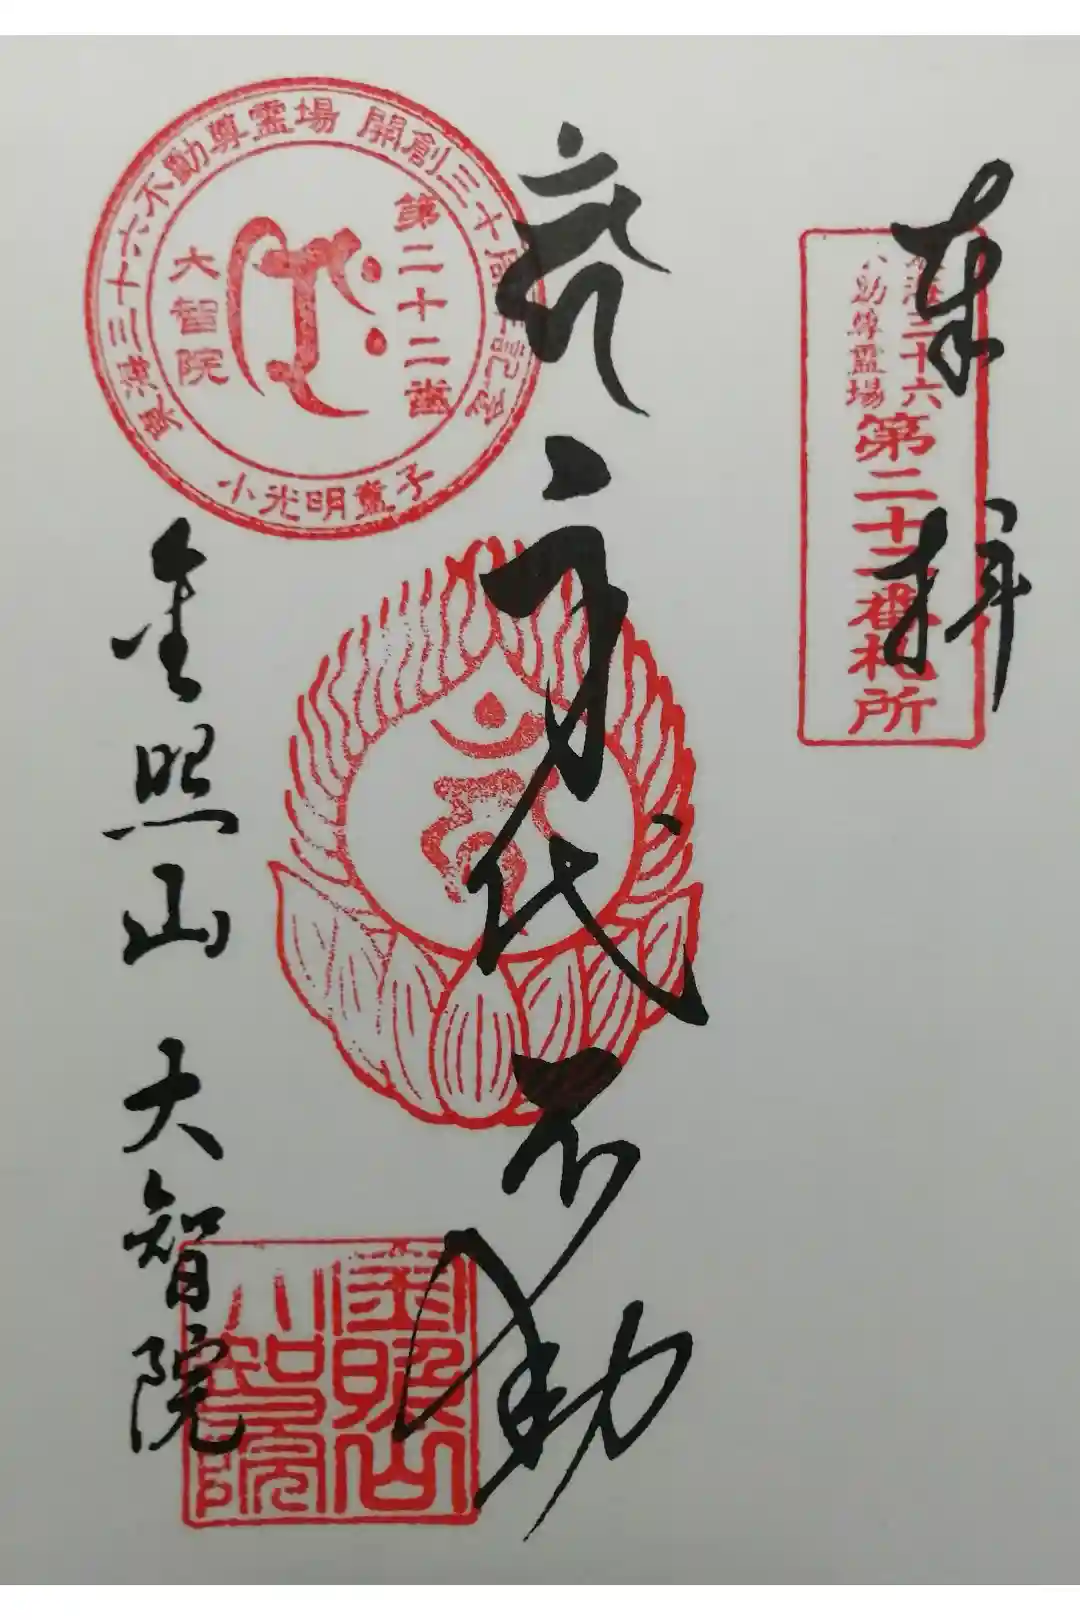 奉拝
東海三十六
不動尊霊場
第二十二番札所
厄除
身代不動
金照山 大智院
東海三十六不動尊霊場 開創三十周年記念
第二十二番
大智院
小光明童子
金照山
大智院